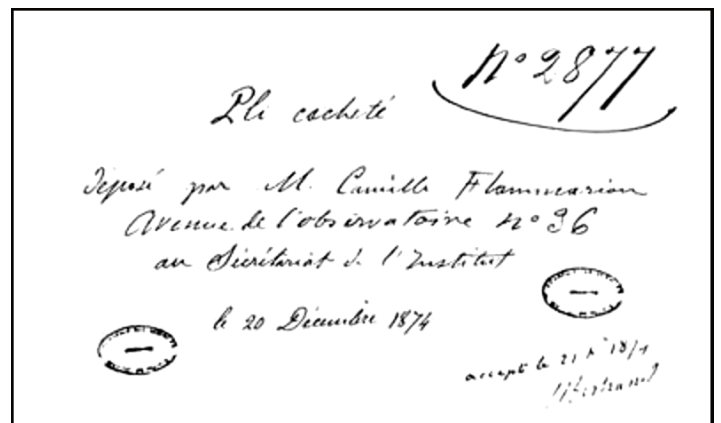 N° 2877
Pli cacheté
déposé par M. Camille Flammarion
Avenue de l'observatoire n° 36
au Sécrétariat de l'Institut
le 20 Décembre 1874
accepté le 21
J. Bertrand